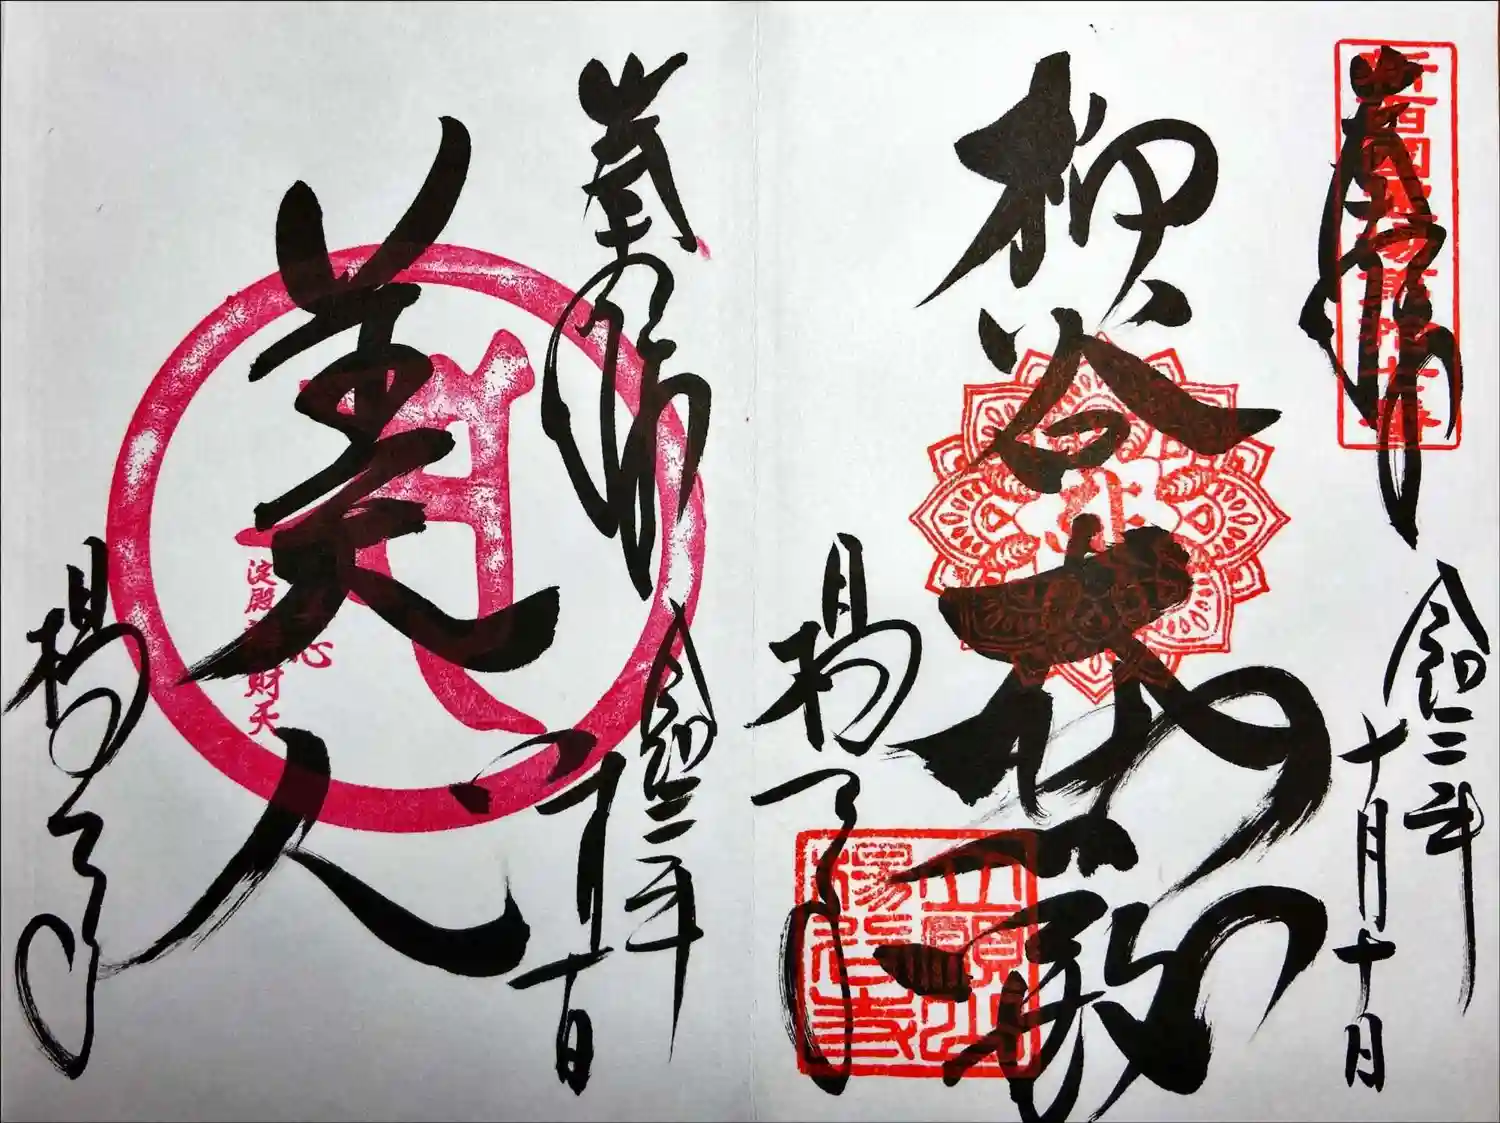 奉拝
新西國霊場第十七番
令和二年
十月十日
柳谷
大悲殿
楊谷寺
立願山
楊谷寺
奉拝
令和二年
十月十日
美人
心
淀殿
財天
楊谷寺